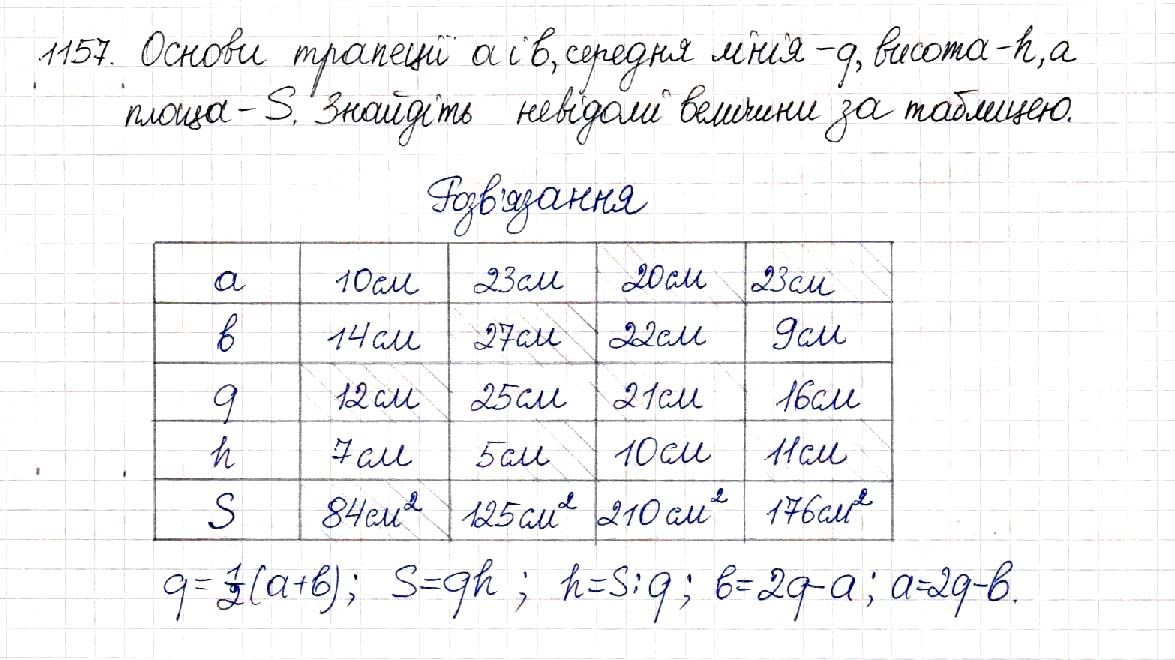 1157. Основи трапеції a і b, середня лінія - q, висота - h, а
площа - S. Знайдіть невідомі величини за таблицею.
Розв'язання
a 10см 23см 20см 23см
b 14см 27см 22см 9см
q 12см 25см 21см 16см
h 7см 5см 10см 11см
S 84см² 125см² 210см² 176см²
q = 1/2(a+b); S=qh; h=S:q; b=2q-a; a=2q-b.